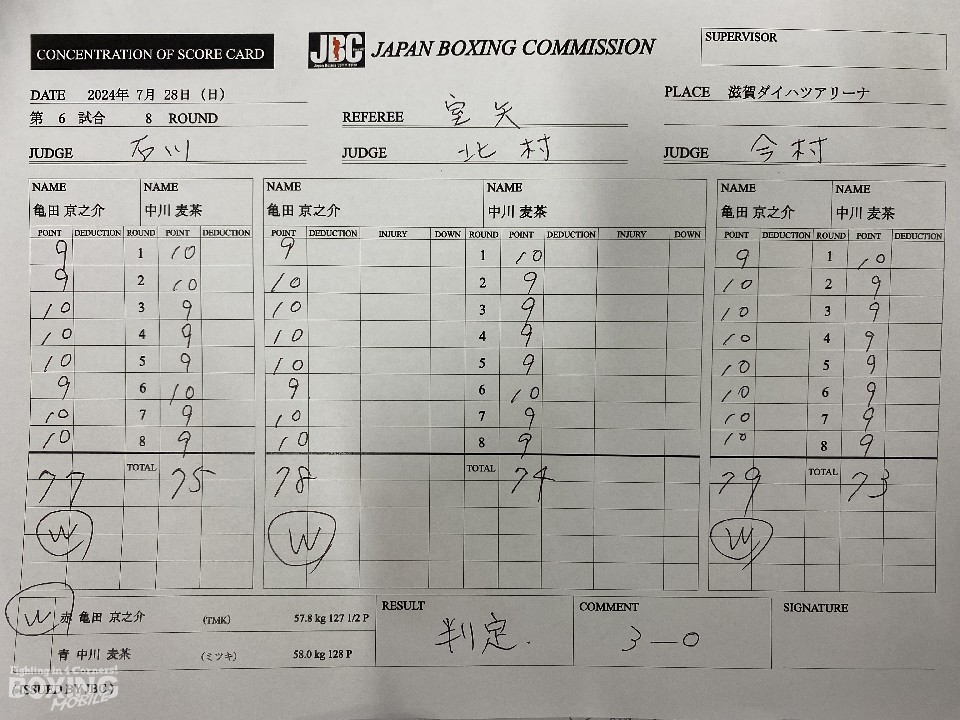 CONCENTRATION OF SCORE CARD
JBC
Japan Boxing Commission
JAPAN BOXING COMMISSION
SUPERVISOR
DATE 2024年 7月 28日 (日)
PLACE 滋賀ダイハツアリーナ
第 6 試合 8 ROUND
REFEREE 室矢
JUDGE 石川
JUDGE 北村
JUDGE 今村
NAME NAME NAME NAME NAME NAME
亀田 京之介 中川 麦茶 亀田 京之介 中川 麦茶 亀田 京之介 中川 麦茶
POINT DEDUCTION ROUND POINT DEDUCTION POINT DEDUCTION INJURY DOWN ROUND POINT DEDUCTION INJURY DOWN POINT DEDUCTION ROUND POINT DEDUCTION
9 1 10 9 1 10 9 1 10
9 2 10 10 2 9 10 2 9
10 3 9 10 3 9 10 3 9
10 4 9 10 4 9 10 4 9
10 5 9 10 5 9 10 5 9
9 6 10 9 6 10 10 6 9
10 7 9 10 7 9 10 7 9
10 8 9 10 8 9 10 8 9
77 TOTAL 75 78 TOTAL 74 79 TOTAL 73
W W W
W 赤 亀田 京之介 (TMK) 57.8 kg 127 1/2 P
青 中川 麦茶 (ミツキ) 58.0 kg 128 P
RESULT 判定.
COMMENT 3-0
SIGNATURE
(ISSUED BY JBC)
Fighting in 4 Corners!
BOXING
MOBILE